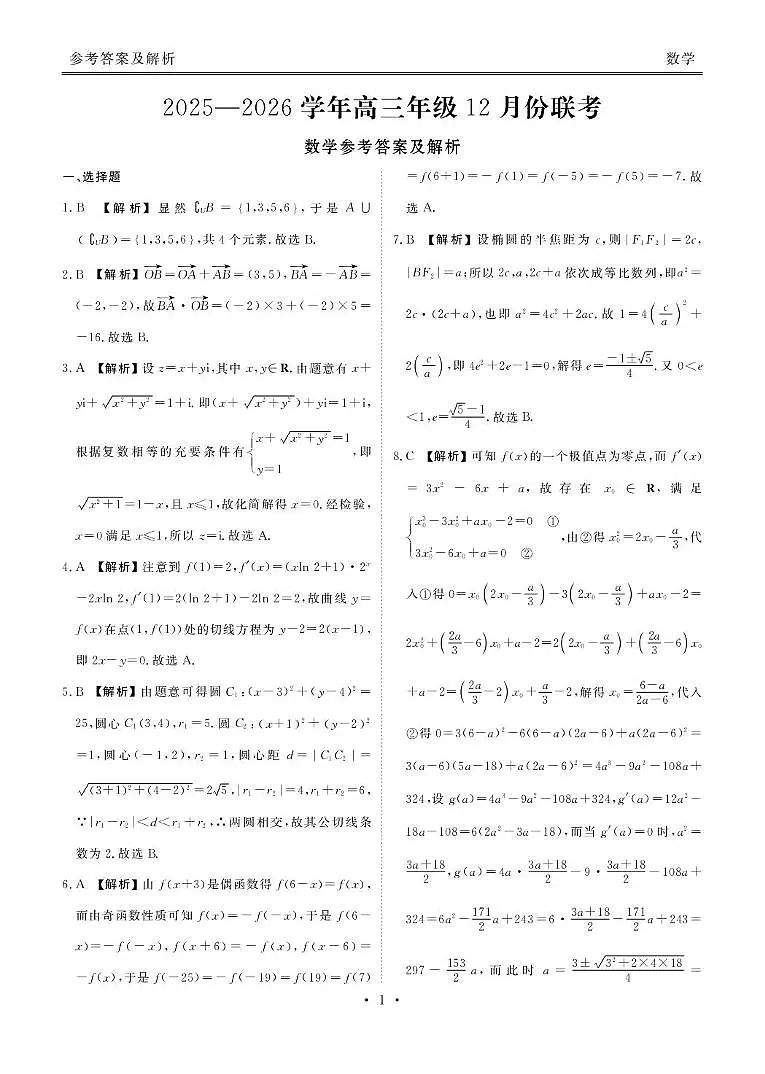 参考答案及解析
数学
2025—2026 学年高三年级 12 月份联考
数学参考答案及解析
一、选择题
1. B 【解析】显然 ∁UB = {1,3,5,6},于是 A ∪
(∁UB) = {1,3,5,6},共 4 个元素. 故选 B.
2. B 【解析】OB→=OA→+AB→=(3,5),BA→=-AB→=
(-2,-2),故BA→·OB→=(-2)×3+(-2)×5=
-16. 故选 B.
3. A 【解析】设 z=x+yi,其中 x,y∈R. 由题意有 x+
yi+√(x²+y²)=1+i. 即(x+√(x²+y²))+yi=1+i,
根据复数相等的充要条件有{x+√(x²+y²)=1 y=1,即
√(x²+1)=1-x,且 x≤1,故化简解得 x=0. 经检验,
x=0 满足 x≤1,所以 z=i. 故选 A.
4. A 【解析】注意到 f(1)=2,f′(x)=(xln 2+1)·2ˣ
-2xln 2,f′(1)=2(ln 2+1)-2ln 2=2,故曲线 y=
f(x)在点(1,f(1))处的切线方程为 y-2=2(x-1),
即 2x-y=0. 故选 A.
5. B 【解析】由题意可得圆 C₁:(x-3)²+(y-4)²=
25,圆心 C₁(3,4),r₁=5. 圆 C₂:(x+1)²+(y-2)²
=1,圆心(-1,2),r₂=1,圆心距 d=|C₁C₂|=
√((3+1)²+(4-2)²)=2√5. |r₁-r₂|=4,r₁+r₂=6,
∵|r₁-r₂|<d<r₁+r₂,∴两圆相交,故其公切线条
数为 2. 故选 B.
6. A 【解析】由 f(x+3)是偶函数得 f(6-x)=f(x),
而由奇函数性质可知 f(x)=-f(-x),于是 f(6-
x)=-f(-x),f(x+6)=-f(x),f(x-6)=
-f(x),于是 f(-25)=-f(-19)=f(19)=f(7)
=f(6+1)=-f(1)=f(-5)=-f(5)=-7. 故
选 A.
7. B 【解析】设椭圆的半焦距为 c,则|F₁F₂|=2c,
|BF₂|=a;所以 2c,a,2c+a 依次成等比数列,即a²=
2c·(2c+a),也即 a²=4c²+2ac. 故 1=4(c/a)²+
2(c/a),即 4e²+2e-1=0,解得 e=(-1±√5)/4. 又 0<e
<1,e=(√5-1)/4. 故选 B.
8. C 【解析】可知 f(x)的一个极值点为零点,而 f′(x)
= 3x² - 6x + a,故存在 x₀ ∈ R,满足
{x₀³-3x₀²+ax₀-2=0 ① 3x₀²-6x₀+a=0 ②,由②得 x₀²=2x₀-a/3,代
入①得 0=x₀(2x₀-a/3)-3(2x₀-a/3)+ax₀-2=
2x₀²+(2a/3-6)x₀+a-2=2(2x₀-a/3)+(2a/3-6)x₀
+a-2=(2a/3-2)x₀+a/3-2,解得 x₀=(6-a)/(2a-6),代入
②得 0=3(6-a)²-6(6-a)(2a-6)+a(2a-6)²=
3(a-6)(5a-18)+a(2a-6)²=4a³-9a²-108a+
324,设 g(a)=4a³-9a²-108a+324,g′(a)=12a²-
18a-108=6(2a²-3a-18),而当 g′(a)=0 时,a²=
(3a+18)/2,g(a)=4a·(3a+18)/2-9·(3a+18)/2-108a+
324=6a²-171/2a+243=6·(3a+18)/2-171/2a+243=
297-153/2a,而此时 a=(3±√(3²+2×4×18))/4=
· 1 ·